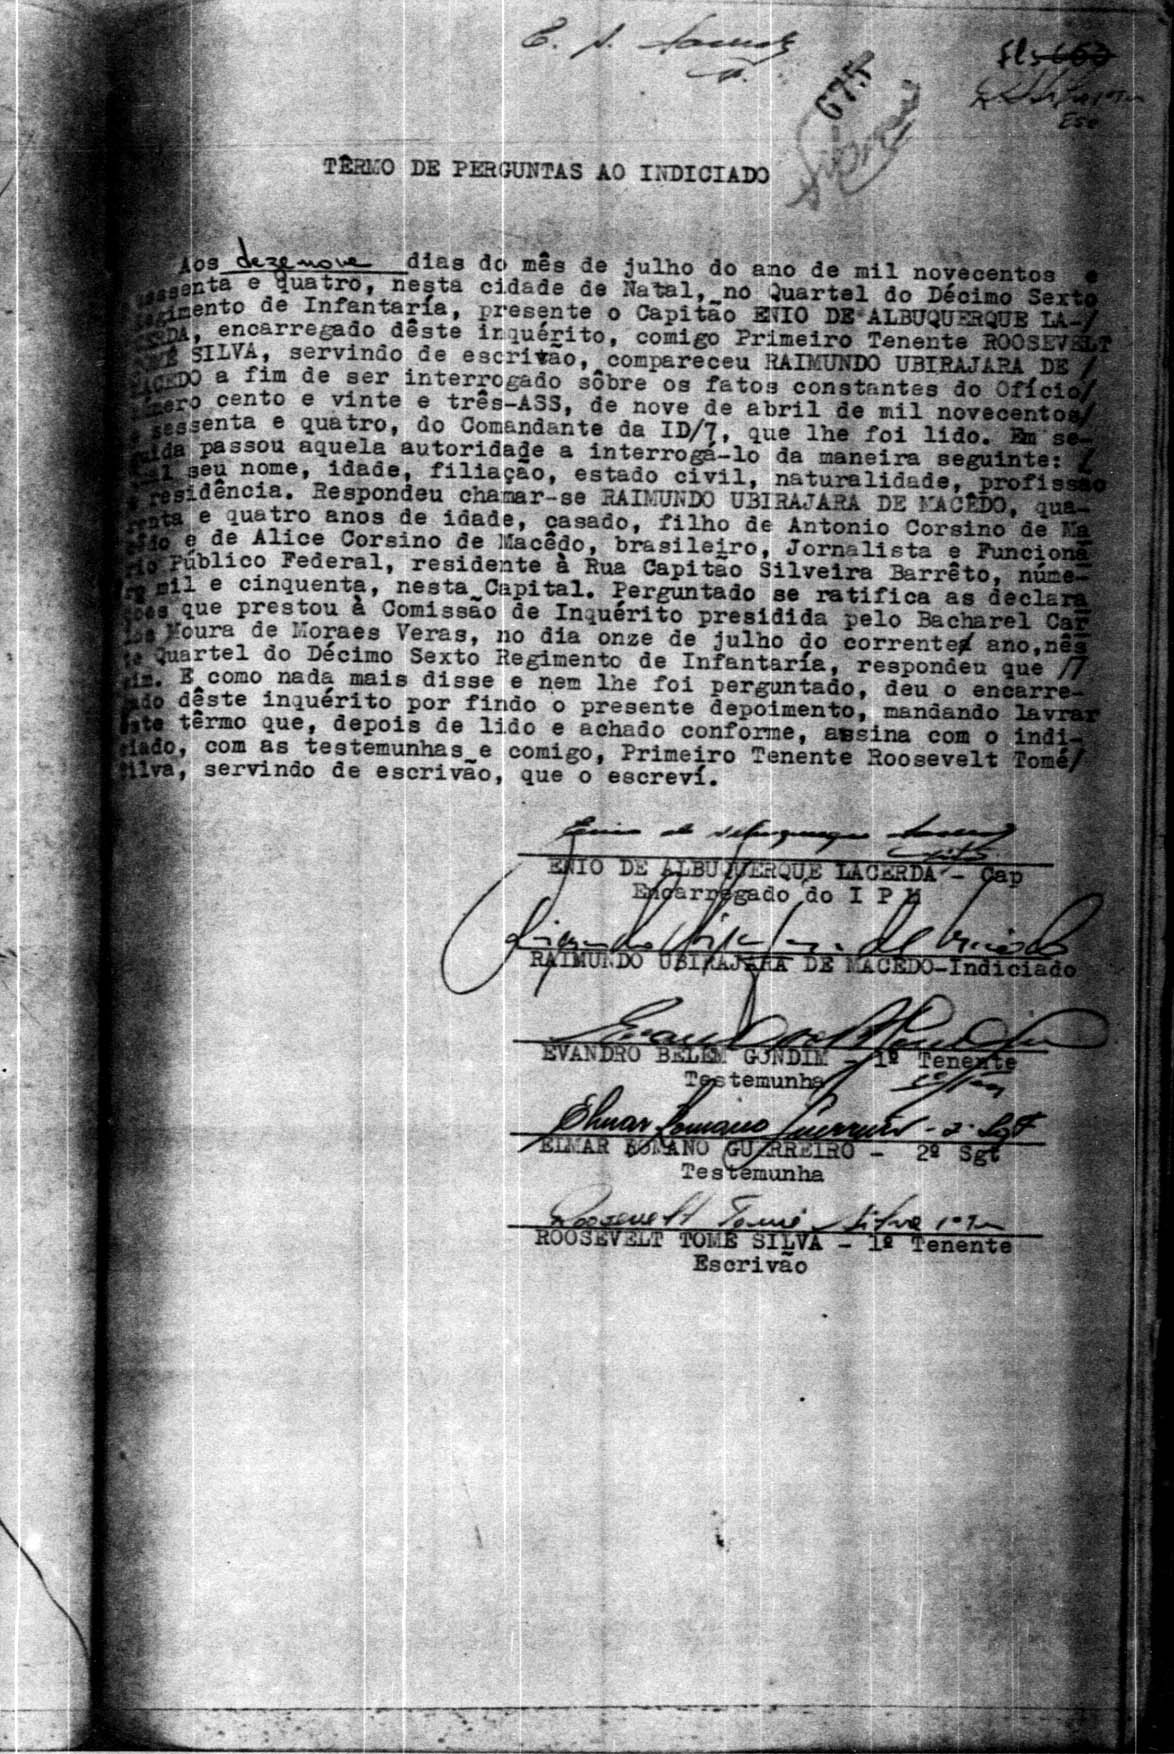 E. A. Lacerda
fls 663
675
Esc
TÊRMO DE PERGUNTAS AO INDICIADO
Aos dezenove dias do mês de julho do ano de mil novecentos e
sessenta e quatro, nesta cidade de Natal, no Quartel do Décimo Sexto
Regimento de Infantaría, presente o Capitão ENIO DE ALBUQUERQUE LA-/
CERDA, encarregado dêste inquérito, comigo Primeiro Tenente ROOSEVELT
TOMÉ SILVA, servindo de escrivão, compareceu RAIMUNDO UBIRAJARA DE /
MACEDO a fim de ser interrogado sôbre os fatos constantes do Ofício/
número cento e vinte e três-ASS, de nove de abril de mil novecentos/
e sessenta e quatro, do Comandante da ID/7, que lhe foi lido. Em se-
guida passou aquela autoridade a interrogá-lo da maneira seguinte: /
qual seu nome, idade, filiação, estado civil, naturalidade, profissão
e residência. Respondeu chamar-se RAIMUNDO UBIRAJARA DE MACÊDO, qua-
renta e quatro anos de idade, casado, filho de Antonio Corsino de Ma
cêdo e de Alice Corsino de Macêdo, brasileiro, Jornalista e Funcioná
rio Público Federal, residente à Rua Capitão Silveira Barrêto, núme-
ro mil e cinquenta, nesta Capital. Perguntado se ratifica as declara
ções que prestou à Comissão de Inquérito presidida pelo Bacharel Car
los Moura de Moraes Veras, no dia onze de julho do corrente/ ano, nês
te Quartel do Décimo Sexto Regimento de Infantaría, respondeu que //
sim. E como nada mais disse e nem lhe foi perguntado, deu o encarre-
gado dêste inquérito por findo o presente depoimento, mandando lavrar
êste têrmo que, depois de lido e achado conforme, assina com o indi-
ciado, com as testemunhas e comigo, Primeiro Tenente Roosevelt Tomé/
Silva, servindo de escrivão, que o escreví.
Enio de Albuquerque Lacerda
ENIO DE ALBUQUERQUE LACERDA - Cap
Encarregado do I P M
Raimundo Ubirajara de Macedo
RAIMUNDO UBIRAJARA DE MACEDO-Indiciado
EVANDRO BELEM GONDIM - 1º Tenente
Testemunha
Elmar Romano Guerreiro - 2º Sgt
ELMAR ROMANO GUERREIRO - 2º Sgt
Testemunha
Roosevelt Tomé Silva 1º Tn
ROOSEVELT TOMÉ SILVA - 1º Tenente
Escrivão